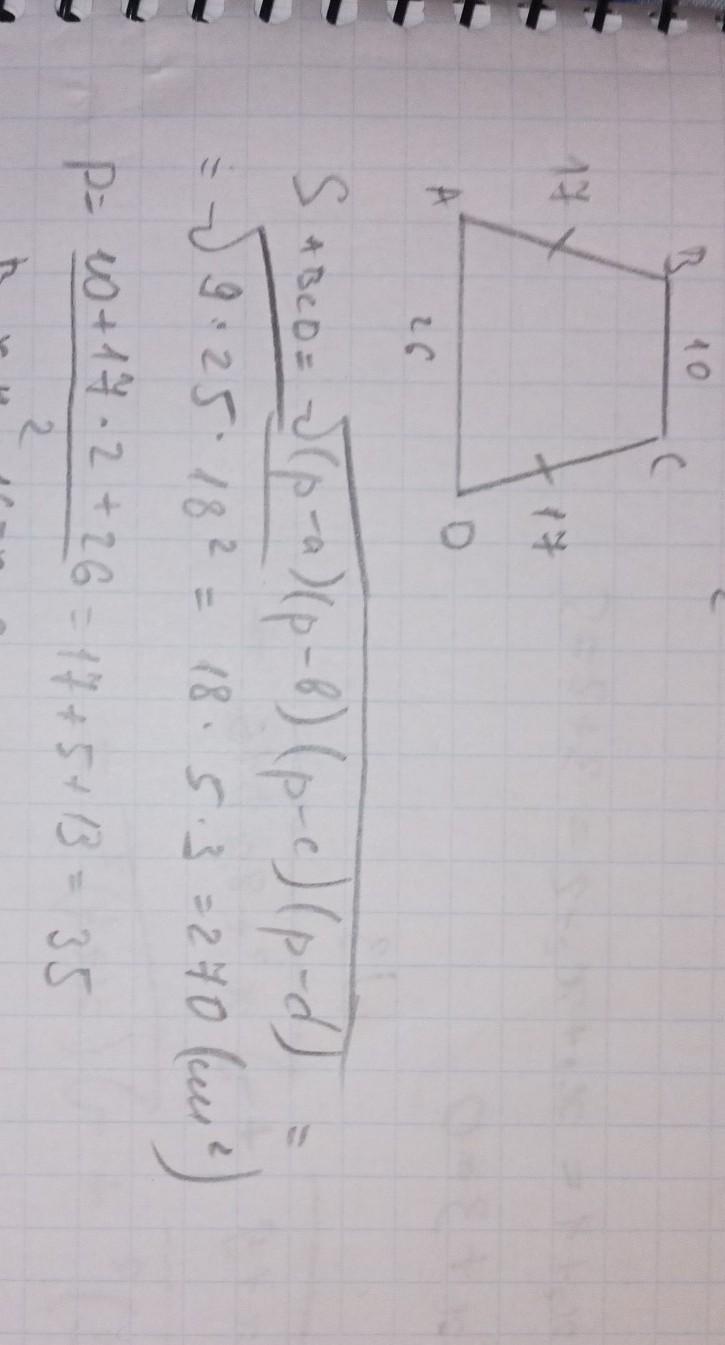 B 10 C
17 17
A 26 D
S ABCD = √(p-a)(p-b)(p-c)(p-d) =
= √9·25·18² = 18·5·3 = 270 (см²)
p = 10+17·2+26 = 17+5+13 = 35
2